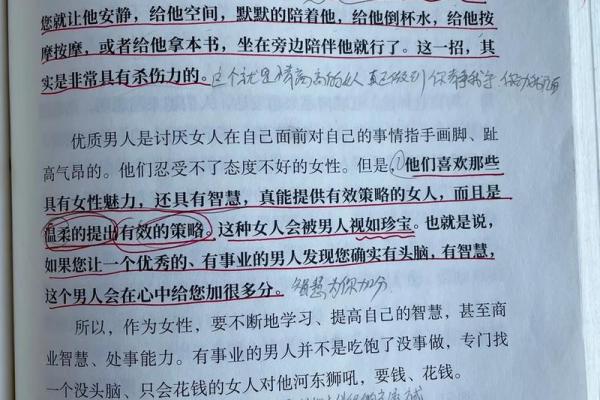 您就让他安静，给他空间，默默的陪着他，给他倒杯水，给他按
摩按摩，或者给他拿本书，坐在旁边陪伴他就行了。这一招，其
实是非常具有杀伤力的。这个就是情商高的女人
优质男人是讨厌女人在自己面前对自己的事情指手画脚、趾
高气昂的。他们忍受不了态度不好的女性。但是，①他们喜欢那些
具有女性魅力，还具有智慧，真能提供有效策略的女人，而且是
温柔的提出有效的策略。这种女人会被男人视如珍宝。也就是说，
如果您让一个优秀的、有事业的男人发现您确实有头脑，有智慧，
这个男人会在心中给您加很多分。智慧为你加分
所以，作为女性，要不断地学习、提高自己的智慧，甚至商
业智慧、处事能力。有事业的男人并不是吃饱了没事做，专门找
一个没头脑、只会花钱的女人对他河东狮吼，要钱、花钱。